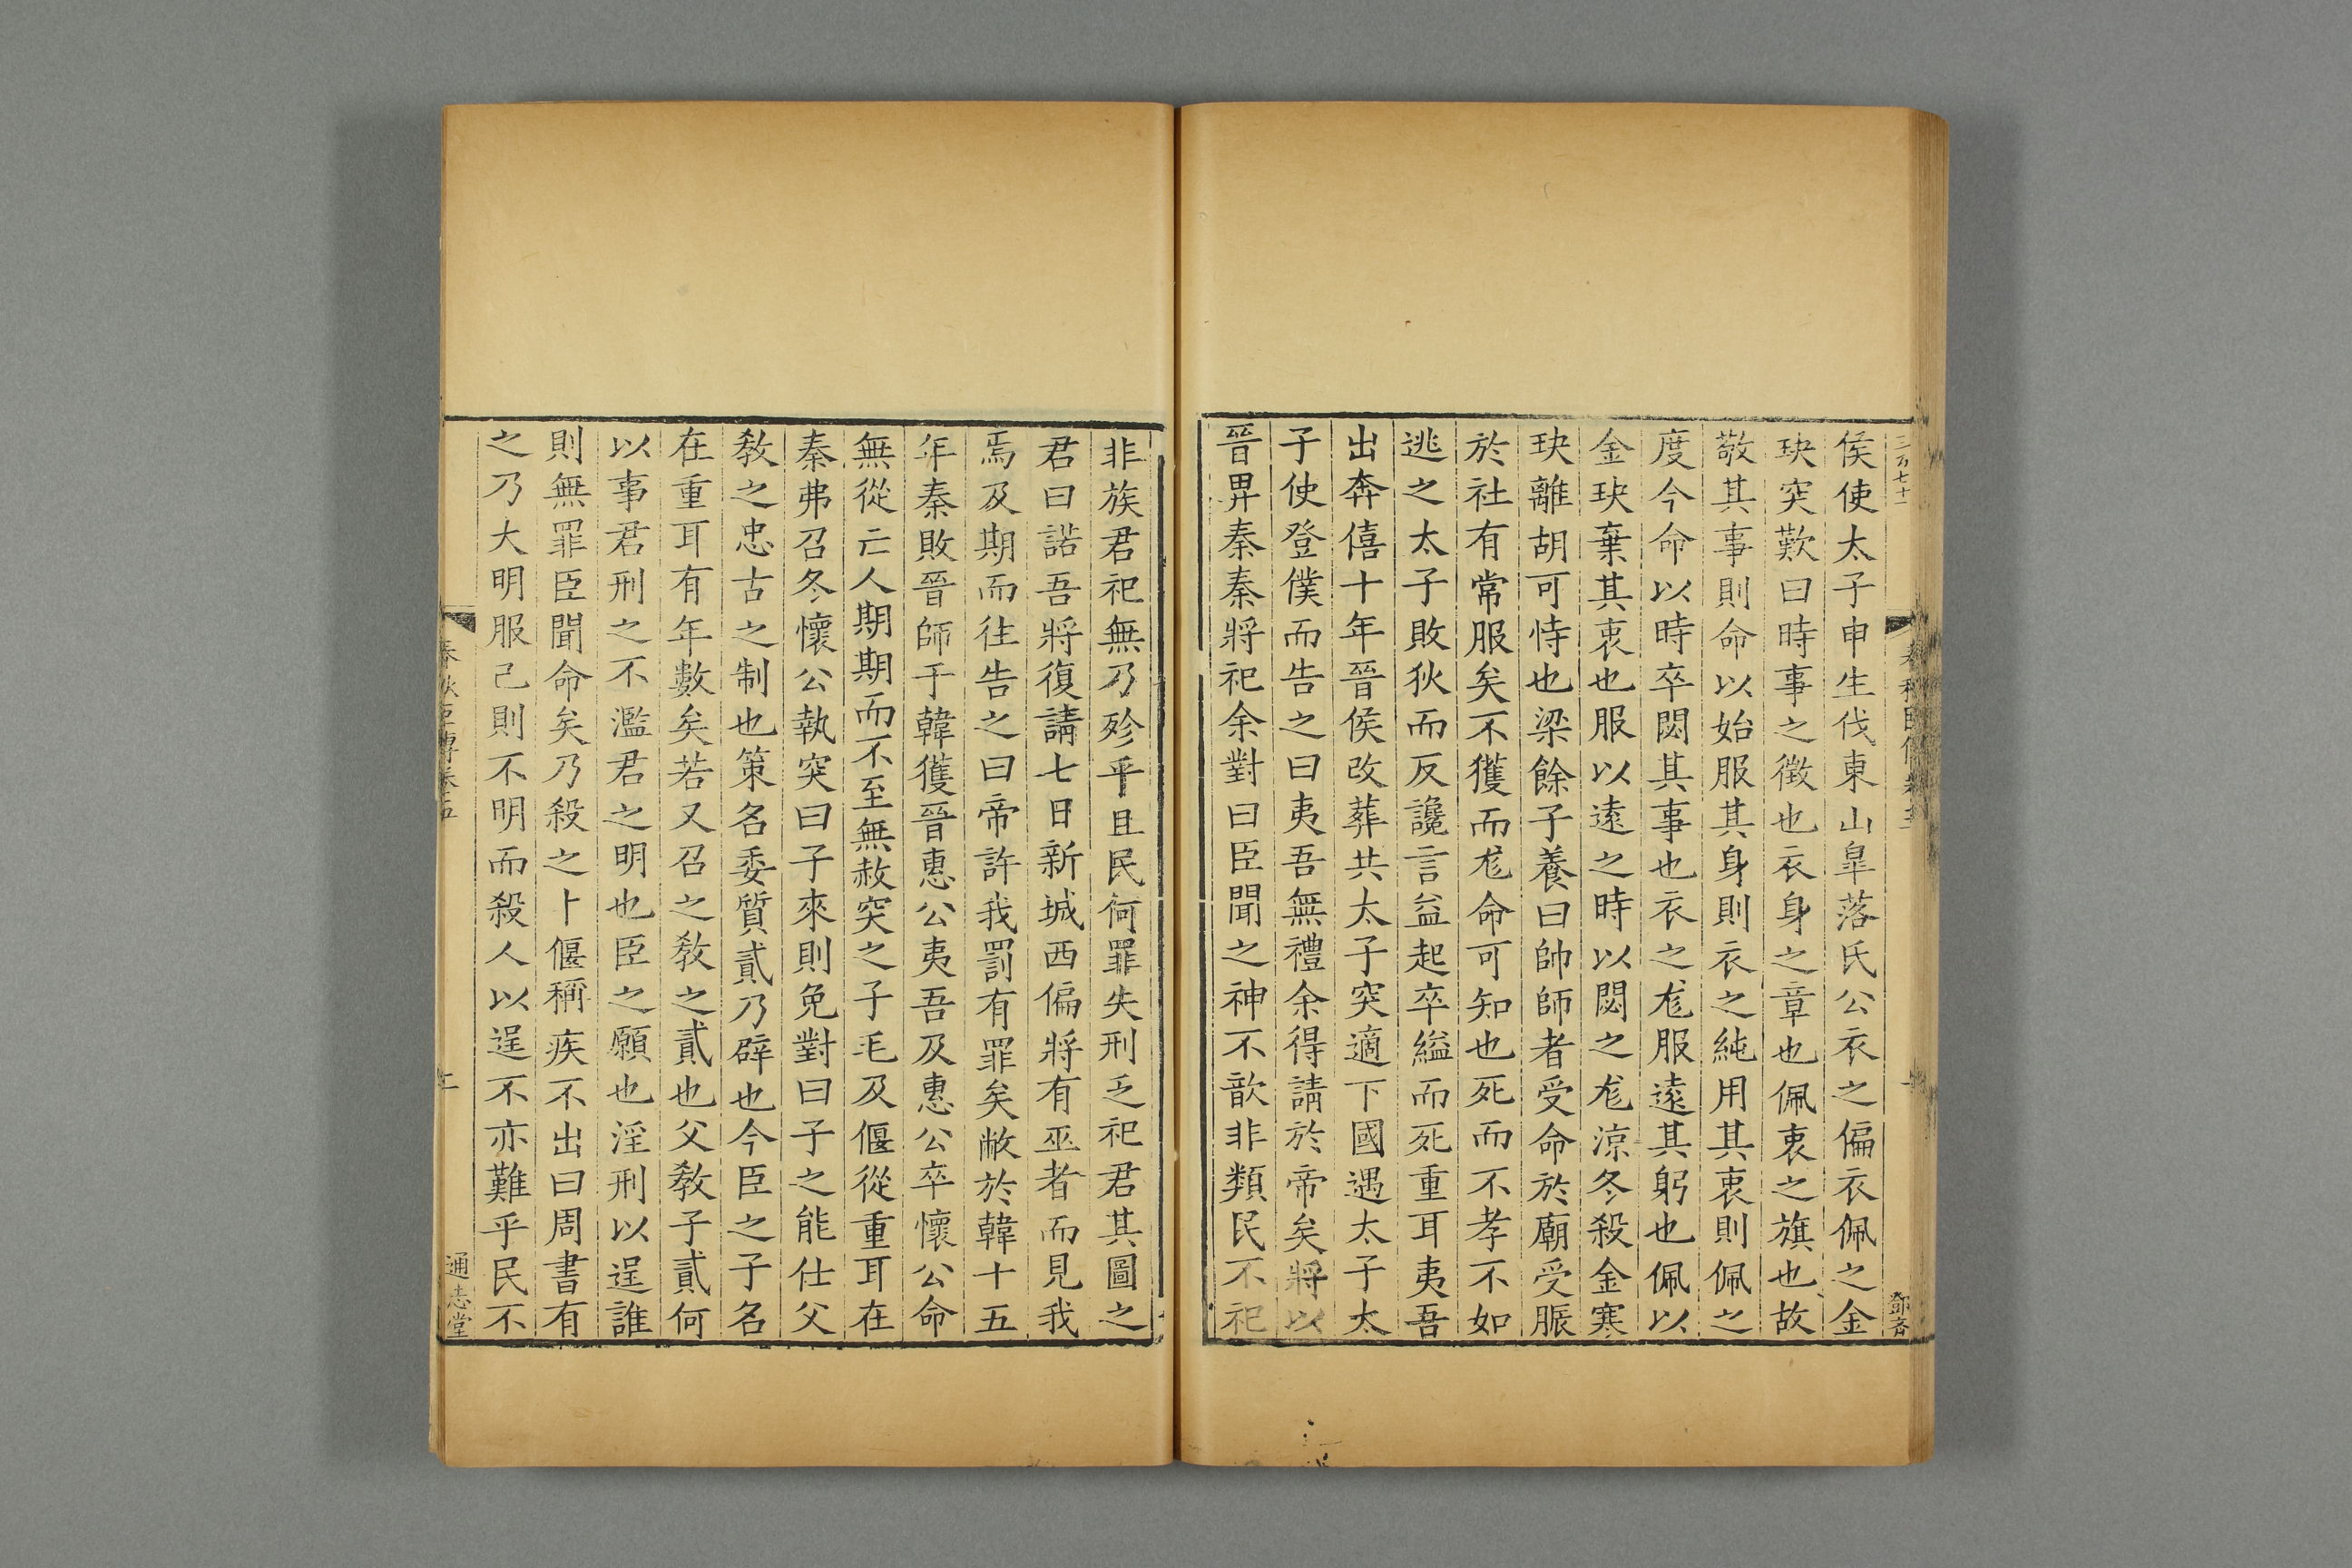 侯使太子申生伐東山臯落氏公衣之偏衣佩之金
玦突歎曰時事之徵也衣身之章也佩衷之旗也故
敬其事則命以始服其身則衣之純用其衷則佩之
度今命以時卒閟其事也衣之尨服遠其躬也佩以
金玦棄其衷也服以遠之時以閟之尨涼冬殺金寒
玦離胡可恃也梁餘子養曰帥師者受命於廟受脤
於社有常服矣不獲而尨命可知也死而不孝不如
逃之太子敗狄而反讒言益起卒縊而死重耳夷吾
出奔僖十年晉侯改葬共太子突適下國遇太子太
子使登僕而告之曰夷吾無禮余得請於帝矣將以
晉畀秦秦將祀余對曰臣聞之神不歆非類民不祀
非族君祀無乃殄乎且民何罪失刑乏祀君其圖之
君曰諾吾將復請七日新城西偏將有巫者而見我
焉及期而往告之曰帝許我罰有罪矣敝於韓十五
年秦敗晉師于韓獲晉惠公夷吾及惠公卒懷公命
無從亡人期期而不至無赦突之子毛及偃從重耳在
秦弗召冬懷公執突曰子來則免對曰子之能仕父
敎之忠古之制也策名委質貳乃辟也今臣之子名
在重耳有年數矣若又召之敎之貳也父敎子貳何
以事君刑之不濫君之明也臣之願也淫刑以逞誰
則無罪臣聞命矣乃殺之卜偃稱疾不出曰周書有
之乃大明服己則不明而殺人以逞不亦難乎民不
通志堂